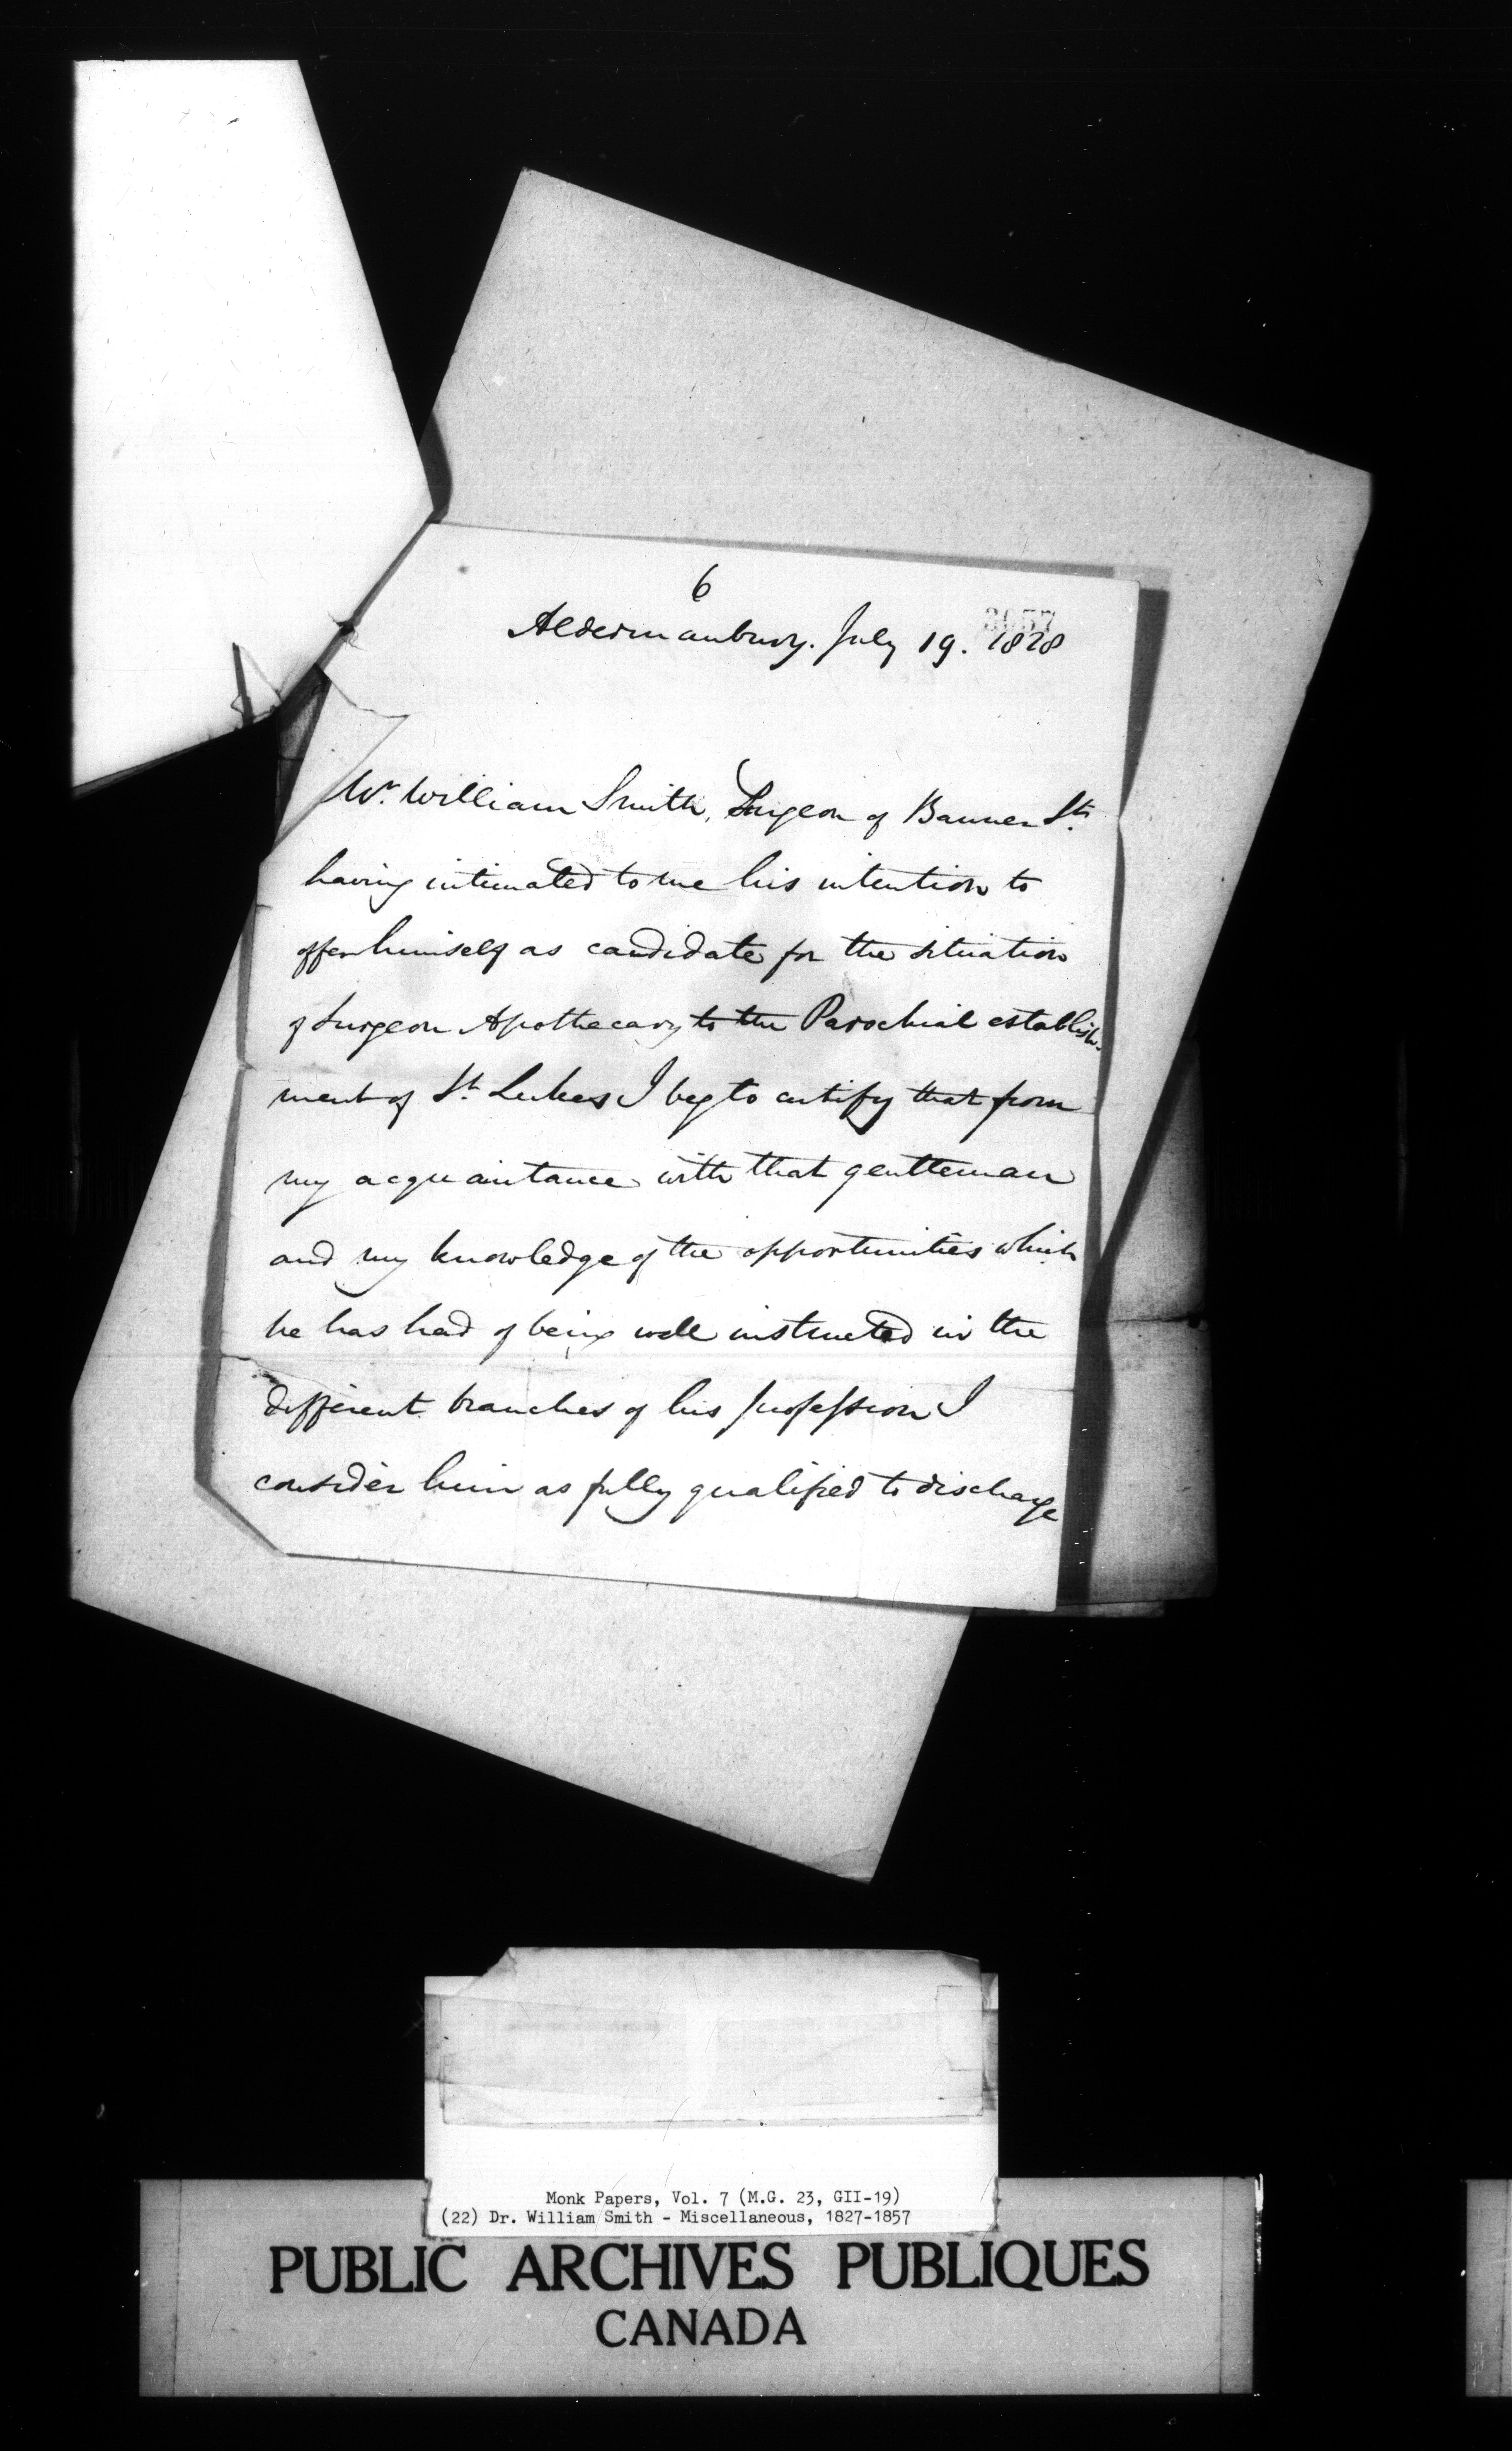 6
Aldermanbury. July 19. 1828
3057
Mr. William Smith, Surgeon of Banner St.
having intimated to me his intention to
offer himself as candidate for the situation
of Surgeon Apothecary to the Parochial establish-
ment of St. Lukes I beg to certify that from
my acquaintance with that gentleman
and my knowledge of the opportunities which
he has had of being well instructed in the
different branches of his profession I
consider him as fully qualified to discharge
Monk Papers, Vol. 7 (M.G. 23, GII-19)
(22) Dr. William Smith - Miscellaneous, 1827-1857
PUBLIC ARCHIVES PUBLIQUES
CANADA